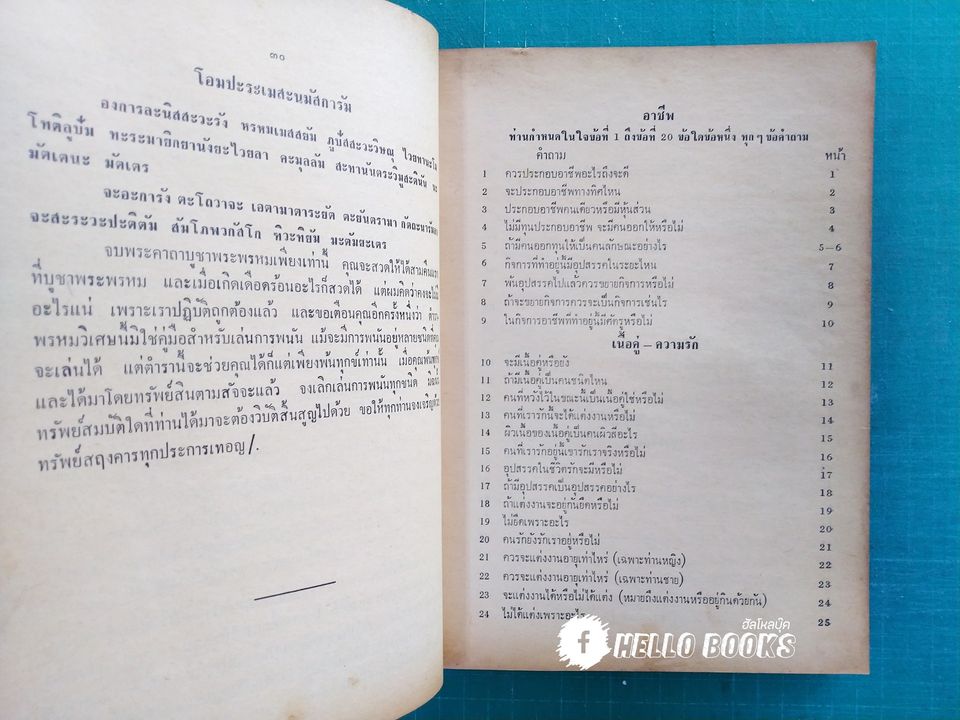 ๓๐
โอมปะระเมสะนมัสการัม
องการะละนิสสะวะรัง พรหมเมสสยัม ภูปัสสะวะวิษณุ ไวยทานะโม
โทติลูปัม ทะระมายิกยานังยะไวยลา คะมุลลัม สะทานันตะระวิมุสะตินัน
มัตเตนะ มัตเตร
จะอะการัง ตะโถวาจะ เอตามาตาระยัต ตะยันตรามา กัตถะนารัมลา
จะสะระวะปะติตัม สัมโภพวกัสโก ทิวะทิยัม มะตัมยะเตร
จบพระคาถาบูชาพระพรหมเพียงเท่านี้ คุณจะสวดให้ได้สามคืนแรก
ที่บูชาพระพรหม และเมื่อเกิดเดือดร้อนอะไรก็สวดได้ แต่ผมคิดว่าคงจะไม่มี
อะไรแน่ เพราะเราปฏิบัติถูกต้องแล้ว และขอเตือนคุณอีกครั้งหนึ่งว่า ตำรา
พรหมวิเศษนั้นมิใช่คู่มือสำหรับเล่นการพนัน แม้จะมีการพนันอยู่หลายชนิดที่คุณ
จะเล่นได้ แต่ตำรานี้จะช่วยคุณได้ก็แต่เพียงพ้นทุกข์เท่านั้น เมื่อคุณพ้นทุกข์
และได้มาโดยทรัพย์สินตามสัจจะแล้ว จงเลิกเล่นการพนันทุกชนิด
ทรัพย์สมบัติใดที่ท่านได้มาจะต้องวิบัติสิ้นสูญไปด้วย ขอให้ทุกท่านจงเจริญด้วย
ทรัพย์สฤงคารทุกประการเทอญ/.
อาชีพ
ท่านกำหนดในใจข้อที่ 1 ถึงข้อที่ 20 ข้อใดข้อหนึ่ง ทุก ๆ ข้อคำถาม
คำถาม หน้า
1 ควรประกอบอาชีพอะไรถึงจะดี 1
2 จะประกอบอาชีพทางทิศไหน 2
3 ประกอบอาชีพคนเดียวหรือมีหุ้นส่วน 3
4 ไม่มีทุนประกอบอาชีพ จะมีคนออกให้หรือไม่ 4
5 ถ้ามีคนออกทุนให้เป็นคนลักษณะอย่างไร 5–6
6 กิจการที่ทำอยู่นี้มีอุปสรรคในระยะไหน 7
7 พ้นอุปสรรคไปแล้วควรขยายกิจการหรือไม่ 8
8 ถ้าจะขยายกิจการควรจะเป็นกิจการเช่นไร 9
9 ในกิจการอาชีพที่ทำอยู่นี้มีศัตรูหรือไม่ 10
เนื้อคู่ – ความรัก
10 จะมีเนื้อคู่หรือยัง 11
11 ถ้ามีเนื้อคู่เป็นคนชนิดไหน 12
12 คนที่หวังไว้ในขณะนี้เป็นเนื้อคู่ใช่หรือไม่ 13
13 คนที่เรารักนี้จะได้แต่งงานหรือไม่ 14
14 ผิวเนื้อของเนื้อคู่เป็นคนผิวสีอะไร 15
15 คนที่เรารักอยู่นี้เขารักเราจริงหรือไม่ 16
16 อุปสรรคในชีวิตรักจะมีหรือไม่ 17
17 ถ้ามีอุปสรรคเป็นอุปสรรคอย่างไร 18
18 ถ้าแต่งงานจะอยู่กันยืดหรือไม่ 19
19 ไม่ยืดเพราะอะไร 20
20 คนรักยังรักเราอยู่หรือไม่ 21
21 ควรจะแต่งงานอายุเท่าไหร่ (เฉพาะท่านหญิง) 22
22 ควรจะแต่งงานอายุเท่าไหร่ (เฉพาะท่านชาย) 23
23 จะแต่งงานได้หรือไม่ได้แต่ง (หมายถึงแต่งงานหรืออยู่กินด้วยกัน) 24
24 ไม่ได้แต่งเพราะอะไร 25
ฮัลโหลบุ๊ค
f HELLO BOOKS